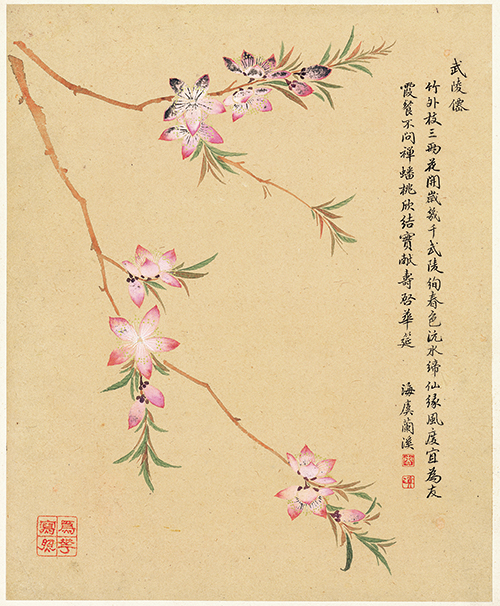 武陵僊
竹外枝三兩花開歲幾千武陵絢春色沅水締仙緣風度宜為友
霞餐不問禪蟠桃欣結實献壽啓華筵
海虞蘭溪
爲花
寫照